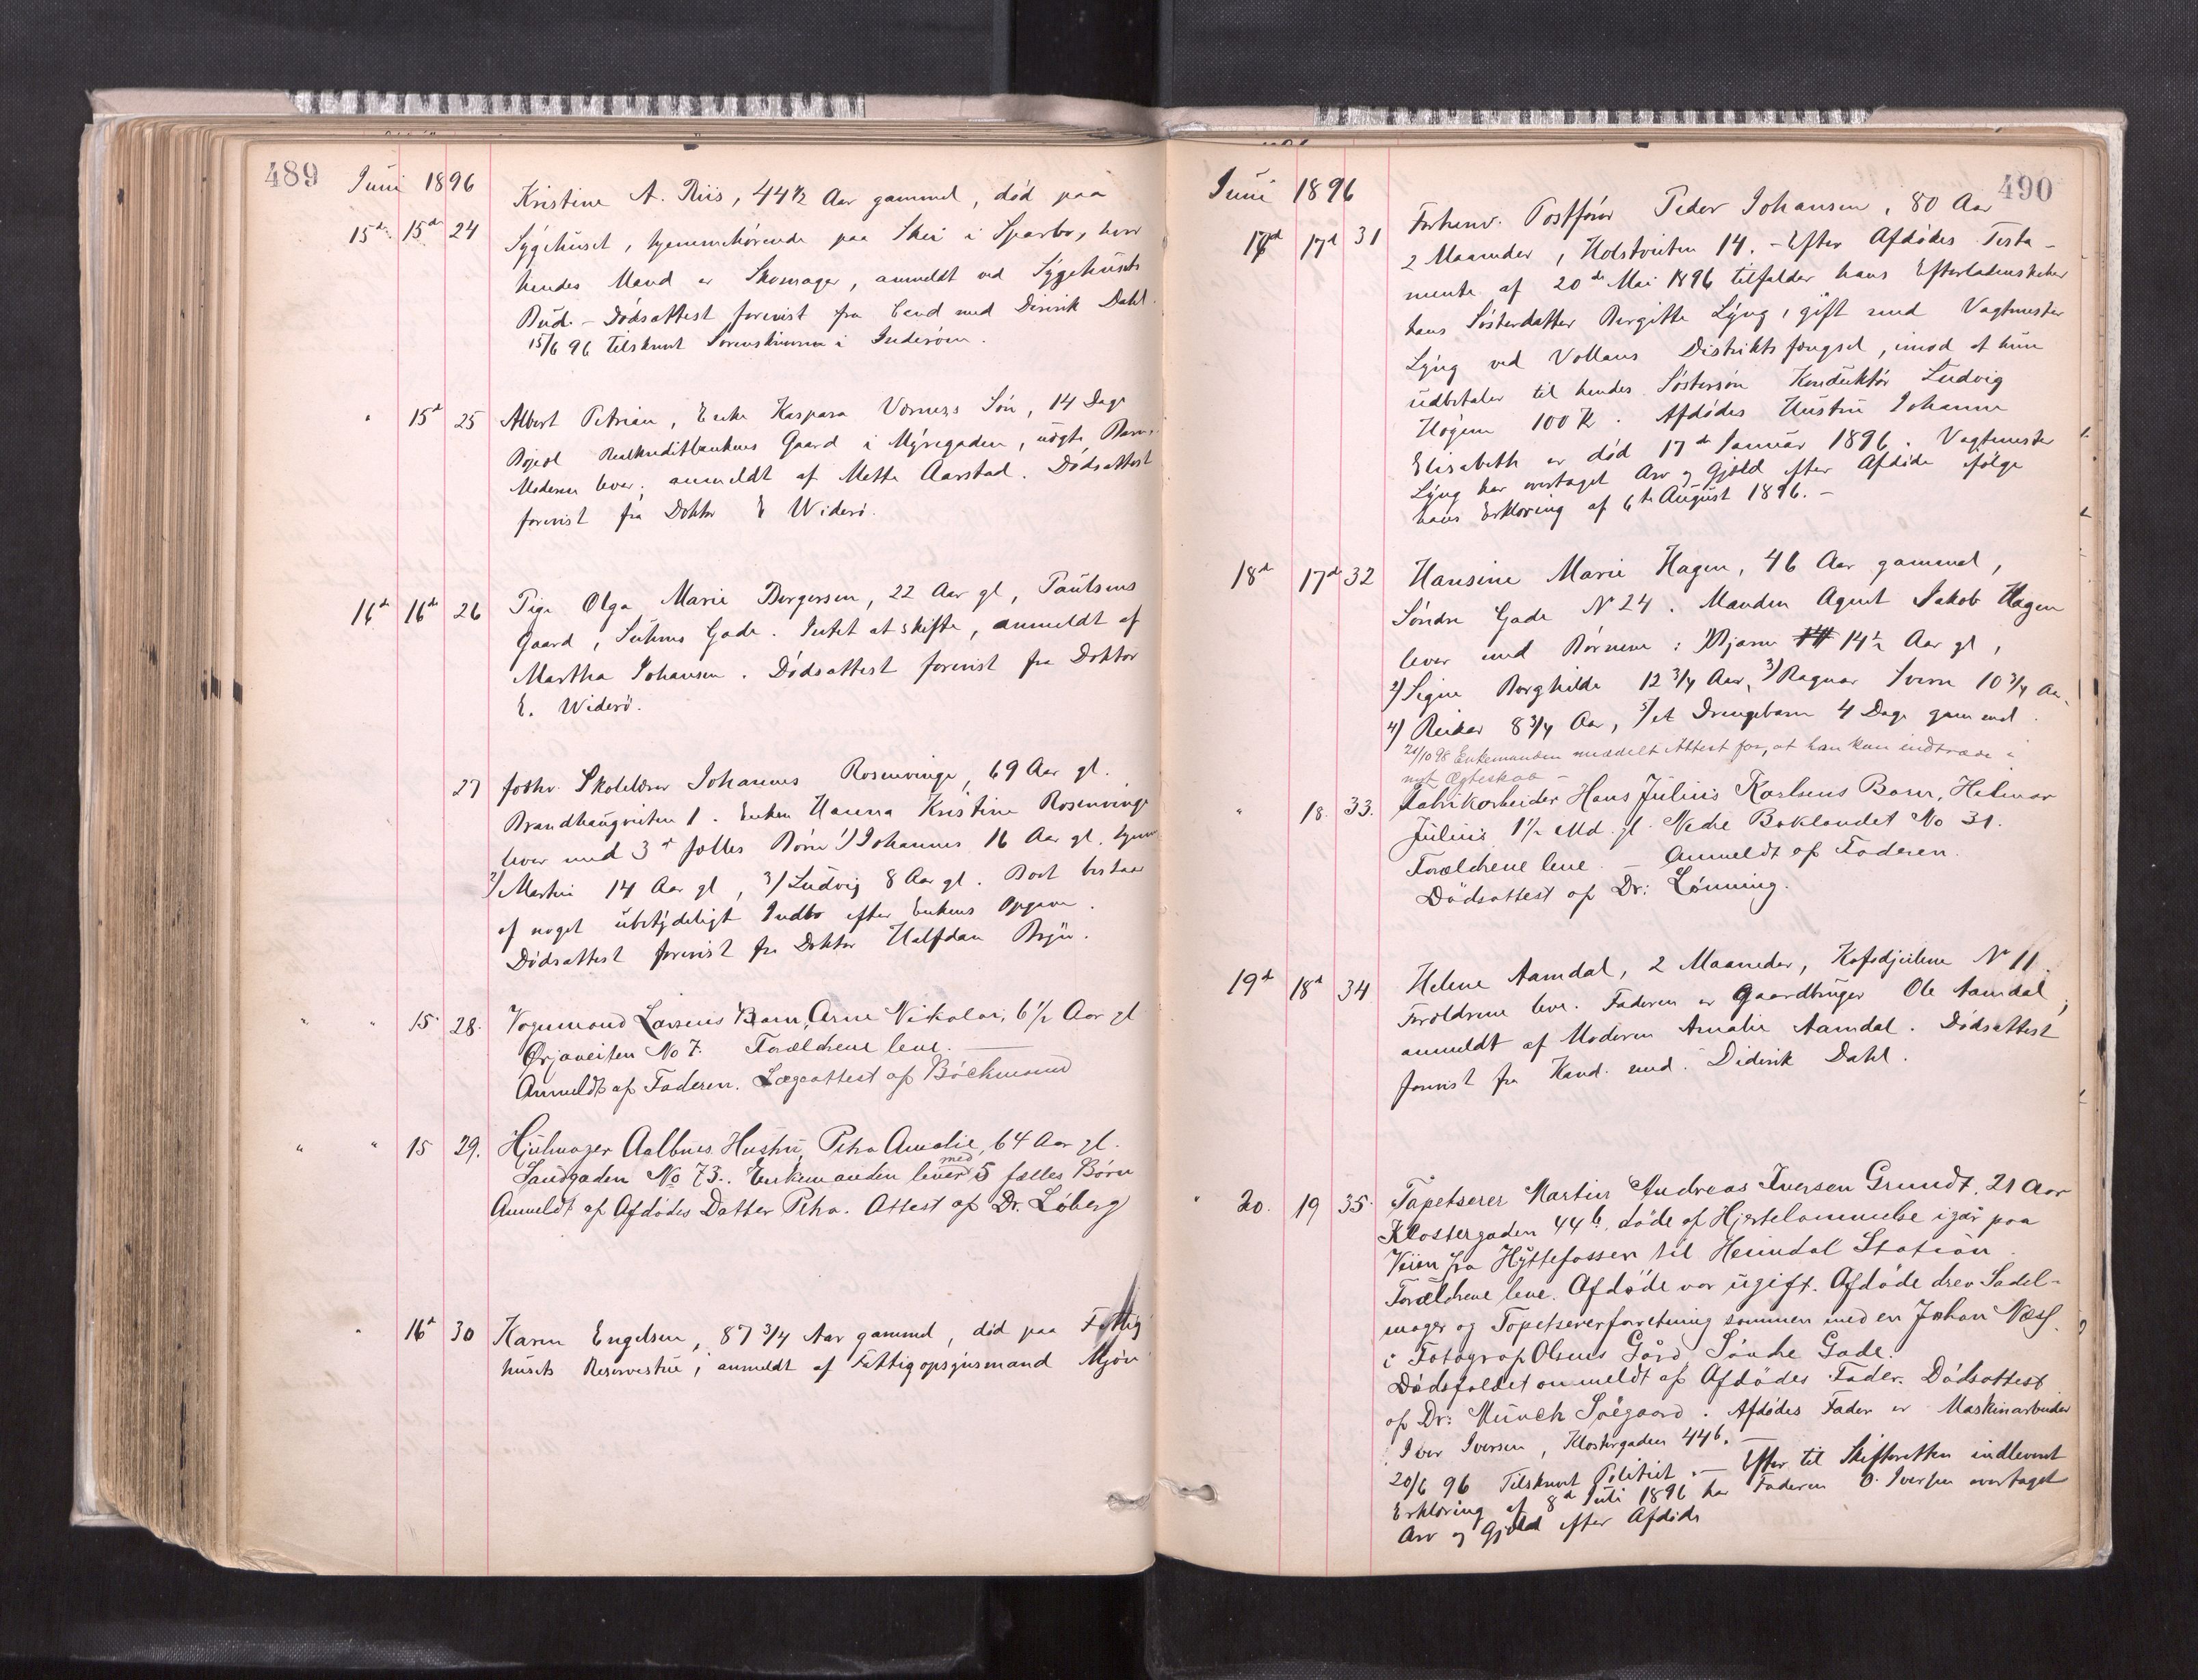 489
Juni 1896
15de 15de 24 Kristine A. Riis, 44 1/2 Aar gammel, död paa
Sygehuset, hjemmehørende paa Skei i Sparbu, hvor
hendes Mand er Skomager, anmeldt ved Sygehusets
Bud. – Dødsattest forevist fra Cand med Didrik Dahl.
15/6 96 Tilskrevet Sorenskriveren i Inderøen.
" 15d 25 Albert Petrian, Enke Kaspara Værness Søn, 14 Dage
Realkreditbankens Gaard i Myregaden, uægte Barn.
Moderen lever; anmeldt af Mette Aarstad. Dødsattest
forevist fra Doktor E Widerö.
16d 16de 26 Pige Olga Marie Bergersen, 22 Aar gl, Paulsens
Gaard, Suhms Gade. Intet at skifte, anmeldt af
Martha Johansen. Dødsattest forevist fra Doktor
E. Widerö.
27 forhv. Skolelærer Johannes Rosenvinge, 69 Aar gl.
Brandhaugveiten 1. Enken Hanna Kristine Rosenvinge
lever med 3 fælles Børn 1) Johannes 16 Aar gl, hjemme
2) Martin 14 Aar gl, 3) Ludvig 8 Aar gl. Boet bestaar
af noget ubetydeligt Indbo efter Enkens Opgave.
Dødsattest forevist fra Doktor Halfdan Bryn.
" " 15 28. Vognmand Larsens Barn, Arne Nikolai, 6 1/2 Aar gl
Ørjaveiten No 7. Forældrene leve.
Anmeldt af Faderen. Lægeattest af Böckmand
" " 15 29. Hjulmager Aalbues Hustru, Petra Amalie, 64 Aar gl.
Sandgaden No 73. Enkemanden lever med 5 fælles Børn
Anmeldt af Afdødes Datter Petra. Attest af Dr. Löberg
" 16d 30 Karen Engelsen, 87 3/4 Aar gammel, død paa Fattig
husets Reservestue, anmeldt af Fattigopsynsmand Mjøen
490
Juni 1896
17d 17d 31 Forhenv. Postfører Peder Johansen, 80 Aar
2 Maaneder, Holstveiten 14. – Efter Afdødes Testa-
mente af 20de Mai 1896 tilfalder hans Efterladenskaber
hans Søsterdatter Bergitte Lyng, gift med Vagtmester
Lyng ved Vollans Distriktsfængsel, imod at hun
udbetaler til hendes Søstersøn Konduktør Ludvig
Høgem 100 K. Afdødes Hustru Johanne
Elisabeth er død 17de Januar 1896. Vagtmester
Lyng har overtaget Arv og Gjæld efter Afdøde ifølge
hans Erklæring af 6te August 1896. –
18d 17d 32 Hansine Marie Hagen, 46 Aar gammel,
Søndre Gade No 24. Manden Agent Jakob Hagen
lever med Børnene: 1) Bjarne 14 1/2 Aar gl,
2) Signe Borghilde 12 3/4 Aar, 3) Ragnar Sverre 10 3/4 Aar,
4) Reidar 8 3/4 Aar, 5) et Drengebarn 4 Dage gammel.
20/10 98 Enkemanden meddelt Attest for, at han kan indtræde i
nyt Ægteskab –
" 18. 33. Fabrikarbeider Hans Julius Karlsens Barn, Helmar
Julius 1 1/2 Md. gl. Nedre Baklandet No 31.
Forældrene leve. – Anmeldt af Faderen.
Dødsattest af Dr: Lönning.
19d 18d 34 Helene Aamdal, 2 Maaneder, No 11.
Forældrene leve. Faderen er Gaardbruger Ole Aamdal,
anmeldt af Moderen Amalie Aamdal. Dødsattest
forevist fra Kand. med. Diderik Dahl.
" 20. 19 35. Tapetserer Martin Andreas Iversen Grundt, 21 Aar
Klostergaden 44b, døde af Hjertelammelse igår paa
Veien fra Hyttefossen til Heimdal Station.
Forældrene leve. Afdøde var ugift. Afdøde drev Sadel-
mager og Tapetsererforretning sammen med en Johan Næss
i Fotograf Olsens Gård Söndre Gade.
Dødsfaldet anmeldt af Afdødes Fader. Dødsattest
af Dr: Münch Söegaard. Afdødes Fader er Maskinarbeider
Iver Iversen, Klostergaden 44b. –
20/6 96 Tilskrevet Politiet. – Efter til Skifteretten indleveret
Erklæring af 8d Juli 1896 har Faderen O. Iversen overtaget
Arv og Gjæld efter Afdøde